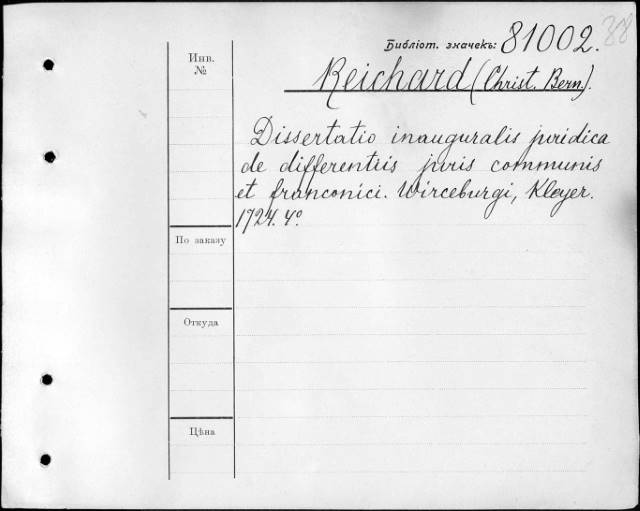 38
Библіот. значекъ: 81002.
Инв.
№
Reichard (Christ. Bern.).
Dissertatio inauguralis juridica
de differentiis juris communis
et franconici. Wirceburgi, Kleyer.
1724. 4º.
По заказу
Откуда
Цѣна